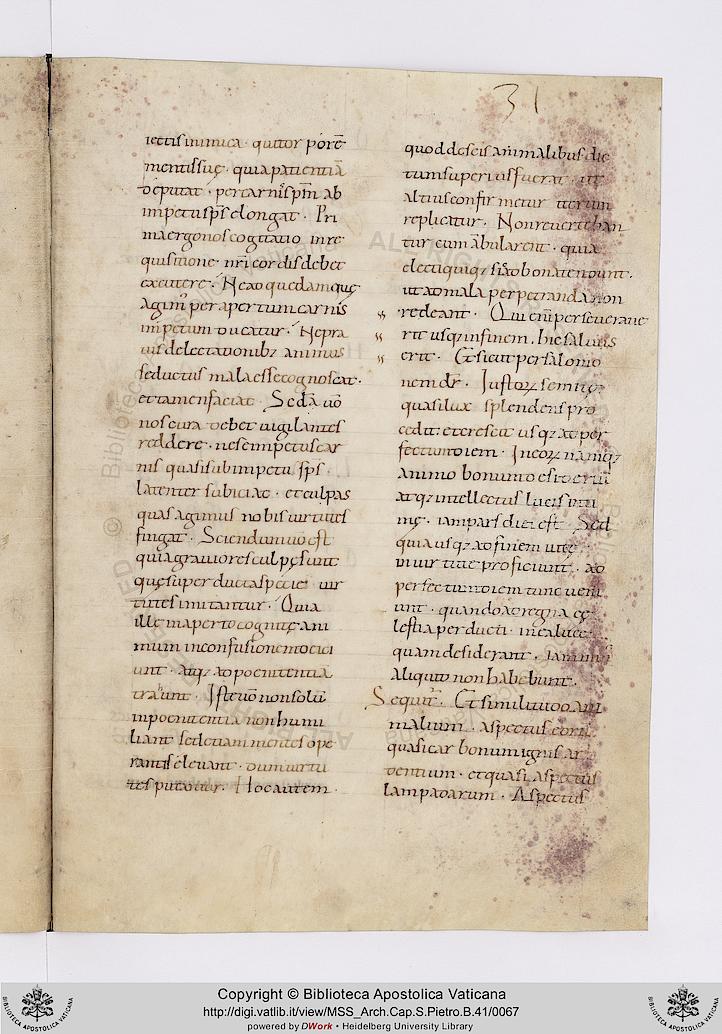 31
iectis inimica · quitor porē
mentis suę · quia patientiā
deputat · per carnis spm̄ ab
impetu sp̄s elongat · Pri
ma ergo nos cogitatio in re
quisitione · nr̄i cordis debet
excutere · Ne ad quedam quę
agim' per apertum carnis
impetum ducatur · Ne pra
uis delectationib; animus
seductus mala esse cognoscat ·
et tamen faciat · Sed
nos cura debet uigilantes
reddere · ne se impetus car
nis quasi sub impetu sp̄s ·
latenter subiciat · et culpas
quas agimus nobis uirtutes
fingat · Sciendum uō est
quia grauiores culpę sunt
quę superducta specie uir
tutes imitantur · Quia
illę in aperto cognitę ani
mum in confusione deici
unt · atq; ad poenitentiā
trahunt · Istę uō non solū
in poenitentia non humi
liant sed etiam mentes ope
rantis eleuant · dum uirtu
tes putantur · Hoc autem
quod de seis animalibus dic
tum superius fuerat · ut
altius confirmetur iterum
replicatur · Non reuerteban
tur cum ambularent · quia
electi quiq; sic ad bona tendunt ·
ut ad mala perpetranda non
redeant · Qui eni perseuerauε
rit usq; in finem · hic saluus
erit · Et sicut per salomo
nem dr̄ · Iustoꝝ semitę
quasi lux splendens pro
cedit et crescit usq; ad per
fectum diem · In eoꝝ namq;
animo bonum desideriū
atq; intellectus lucis inti
mę · iam pars diei est · Sed
quia usq; ad finem uitę
in uirtute proficiunt · ad
perfectum diem tunc ueni
unt · quando ad regna cę
lestia perducti · in ea luce
quam desiderant · iam mi
aliquid non habebunt ·
Sequit' · Et similitudo ani
malium · aspectus eorū
quasi carbonum ignis ar
dentium · et quasi aspectus
lampadarum · Aspectus
Copyright © Biblioteca Apostolica Vaticana
http://digi.vatlib.it/view/MSS_Arch.Cap.S.Pietro.B.41/0067
powered by DWork • Heidelberg University Library
BIBLIOTECA APOSTOLICA VATICANA
BIBLIOTECA APOSTOLICA VATICANA